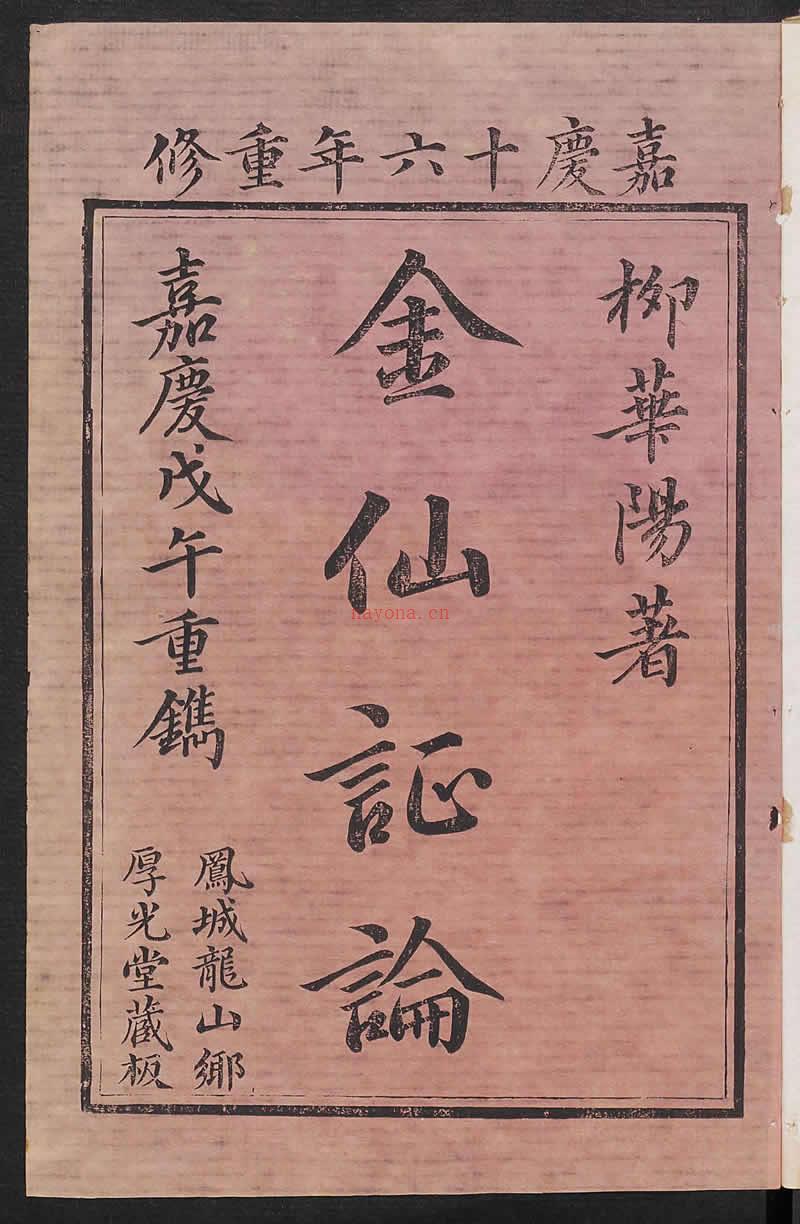 嘉慶十六年重修
柳華陽著
金仙証論
嘉慶戊午重鐫
鳳城龍山鄉
厚光堂藏板
nayona.cn